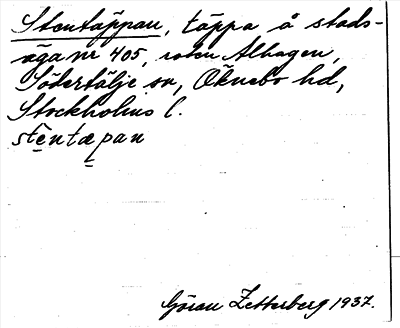 Stentäppan, täppa å stads-
äga nr 405, roten Alhagen,
Södertälje sn, Öknebo hd,
Stockholms l.
stentæpan
Göran Zetterberg 1937.